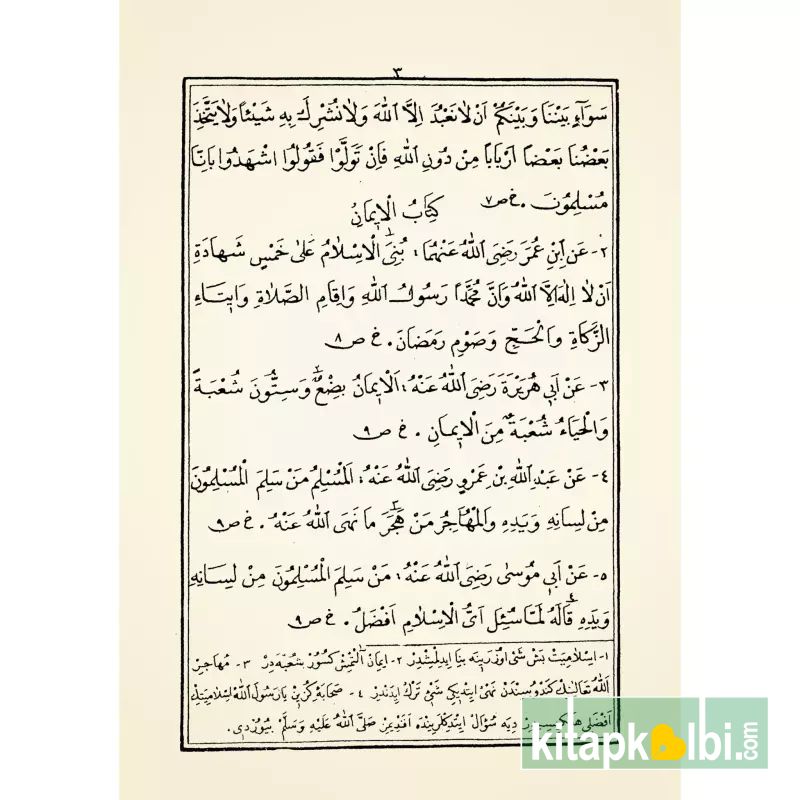 ٣
سَوَآءٍ بَيْنَنَا وَبَيْنَكُمْ اَنْ لَا نَعْبُدَ اِلَّا اللّٰهَ وَلَا نُشْرِكَ بِهِ شَيْئًا وَلَا يَتَّخِذَ
بَعْضُنَا بَعْضًا اَرْبَابًا مِنْ دُونِ اللّٰهِ فَاِنْ تَوَلَّوْا فَقُولُوا اشْهَدُوا بِاَنَّا
مُسْلِمُونَ. خ ص ٧
كِتَابُ الْاِيمَانُ
٢- عَنِ ابْنِ عُمَرَ رَضِىَ اللّٰهُ عَنْهُمَا: بُنِىَ الْاِسْلَامُ عَلٰى خَمْسٍ شَهَادَةِ
اَنْ لَا اِلٰهَ اِلَّا اللّٰهُ وَاَنَّ مُحَمَّدًا رَسُولُ اللّٰهِ وَاِقَامِ الصَّلَاةِ وَاِيتَاءِ
الزَّكَاةِ وَالْحَجِّ وَصَوْمِ رَمَضَانَ. خ ص ٨
٣- عَنْ اَبِى هُرَيْرَةَ رَضِىَ اللّٰهُ عَنْهُ: اَلْاِيمَانُ بِضْعٌ وَسِتُّونَ شُعْبَةً
وَالْحَيَاءُ شُعْبَةٌ مِنَ الْاِيمَانِ. خ ص ٩
٤- عَنْ عَبْدِ اللّٰهِ بْنِ عَمْرٍو رَضِىَ اللّٰهُ عَنْهُ: اَلْمُسْلِمُ مَنْ سَلِمَ الْمُسْلِمُونَ
مِنْ لِسَانِهِ وَيَدِهِ وَالْمُهَاجِرُ مَنْ هَجَرَ مَا نَهَى اللّٰهُ عَنْهُ. خ ص ٩
٥- عَنْ اَبِى مُوسٰى رَضِىَ اللّٰهُ عَنْهُ: مَنْ سَلِمَ الْمُسْلِمُونَ مِنْ لِسَانِهِ
وَيَدِهِ قَالَهُ لَمَّا سُئِلَ اَىُّ الْاِسْلَامِ اَفْضَلُ. خ ص ٩
١- اِسْلَامِيَتْ بَشْ شَىْ اُوزَرِينَه بِنَا اِيدِلْمِشْدِرْ ٢- اِيمَانْ اَلْتْمِشْ كُسُورْ شُعْبَه دِرْ ٣- مُهَاجِرْ
اللّٰهُ تَعَالَينِكْ كَنْدُوسِنْدَنْ نَهْىْ اِيتْدِيكِى شَىْ تَرْكْ اِيدَنْدِرْ ٤- صَحَابَۀ كُزِينْ يَا رَسُولَ اللّٰهِ اِسْلَامِيَتِكْ
اَفْضَلِى دِيَه سُؤَالْ اِيتْدِكْلَرِينْدَه اَفَنْدِيمِزْ صَلَّى اللّٰهُ عَلَيْهِ وَسَلَّمْ بُيُورْدِى.
kitapkalbi.com